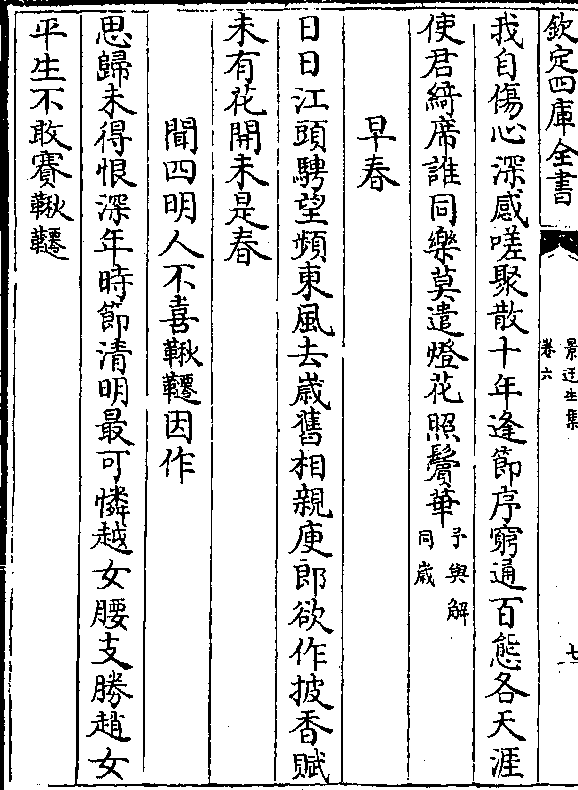 欽定四庫全書
景迂生集
卷六
七
我自傷心深感嗟聚散十年逢節序窮通百態各天涯
使君綺席誰同樂莫遣燈花照鬢華予與解
同歳
早春
日日江頭騁望頻東風去歳舊相親庾郎欲作披香賦
未有花開未是春
聞四明人不喜鞦韆因作
思歸未得恨深年時節清明最可憐越女腰支勝趙女
平生不敢賽鞦韆